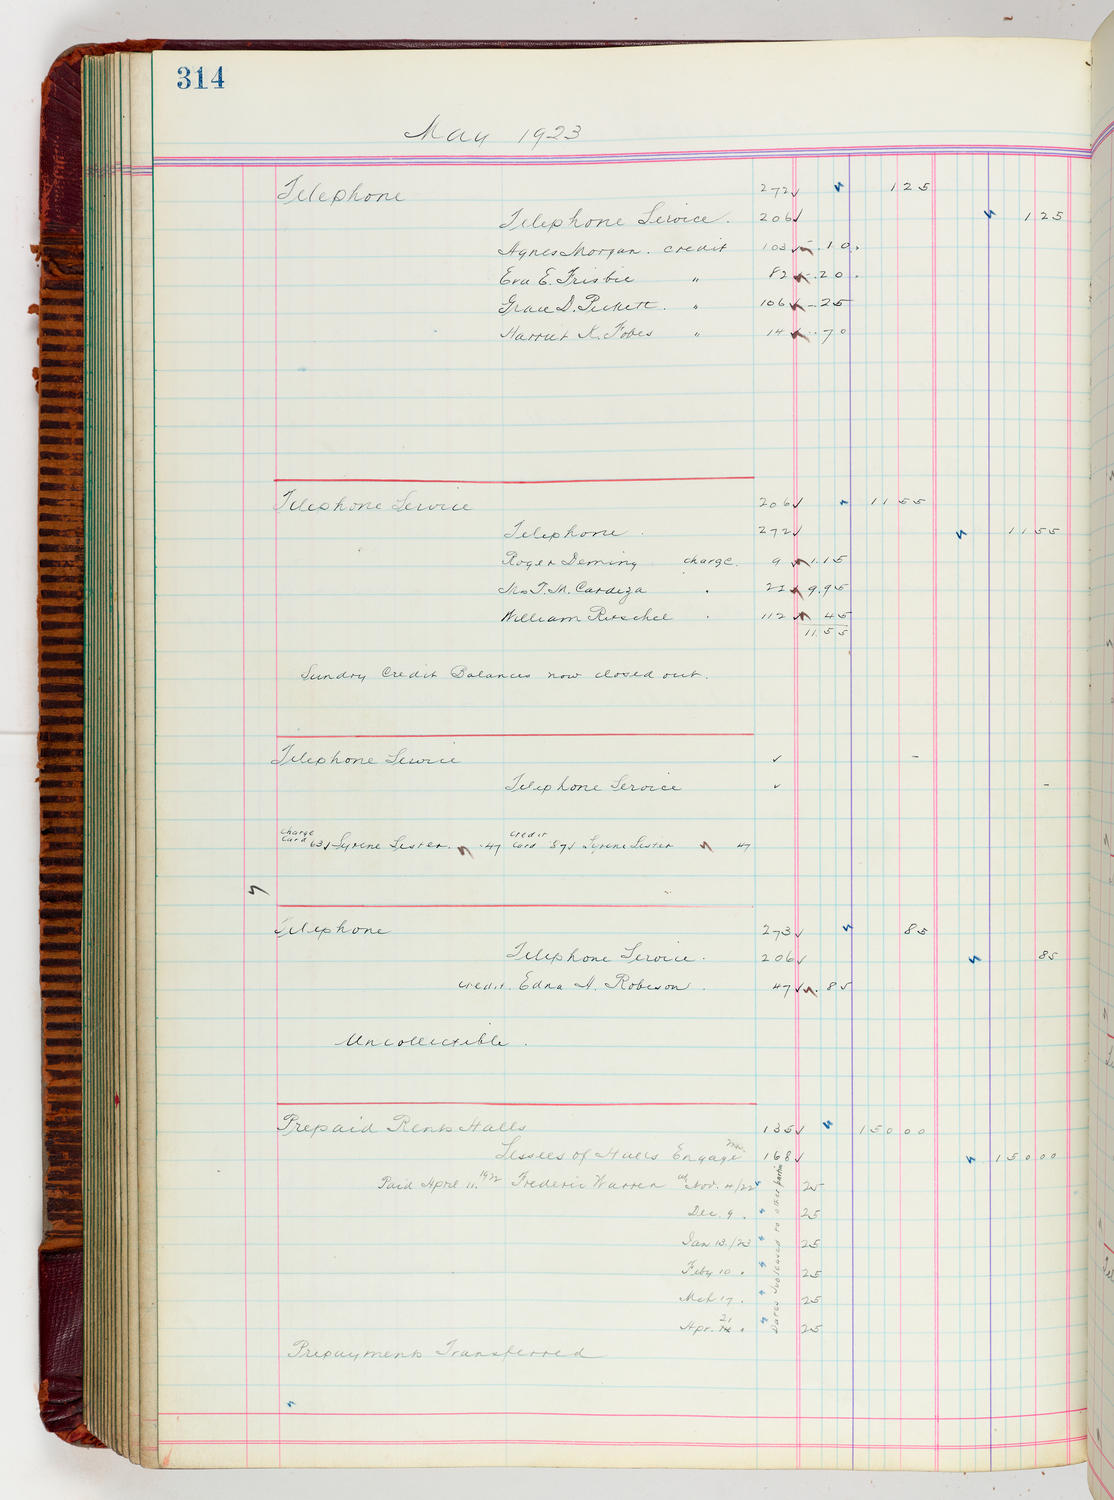 314
May 1923
Telephone 272✓ 1 25
Telephone Service. 206✓ 1 25
Agnes Morgan. credit 103 ✓ .10.
Eva E. Frisbie " 82 .20.
Grace D. Peckett. " 106 .25
Harriet K. Fobes " 14 .70
Telephone Service 206✓ 11 55
Telephone. 272✓ 11 55
Roger Deming charge. 9 1.15
Mrs T. M. Cardeza " 22 9.95
William Ritschel " 112 45
11.55
Sundry Credit Balances now closed out.
Telephone Service ✓ -
Telephone Service ✓ -
Charge Card 63✓ Syrene Lester. .47 Credit Card 57✓ Syrene Lister 47
Telephone 273✓ 85
Telephone Service. 206✓ 85
credit. Edna H. Robeson. 47✓ .85
Uncollectible.
Prepaid Rents Halls 135✓ 150 00
Lessees of Halls Engagemts. 168✓ 150 00
Paid April 11, 1922 Frederic Warren Nov. 4/22 25
Dec. 9. " 25
Jan 13./23 25
Feby 10 " 25
Mch 17. " 25
Apr. 21 " 25
Dates subleased to other parties
Prepayments Transferred